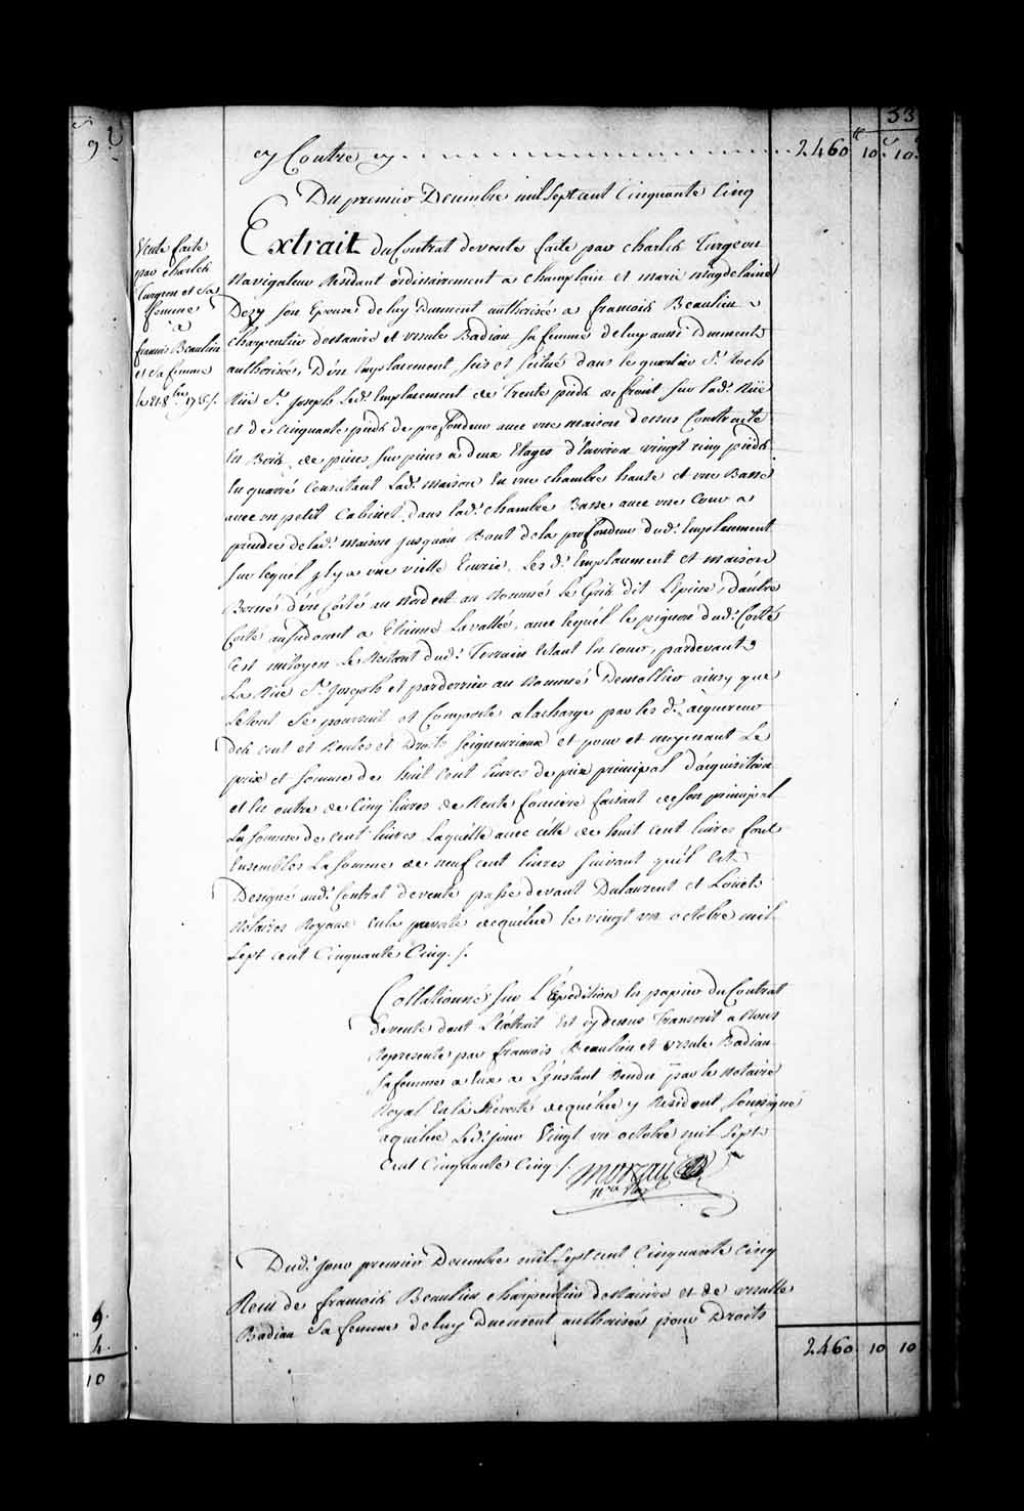 33
9
cy Contre cy 2460 10 10
Du premier Decembre mil Sept cent Cinquante Cinq
Vente faite
par charles
Turgeon et Sa
femme
a
francois Beaulieu
et Sa femme
le 21 8bre 1755 /.
Extrait du Contrat de vente faite par charles Turgeon
Navigateur Residant ordinairement a Champlain et marie magdelaine
Dezy son Epouse de luy duement authorisée a francois Beaulieu
charpentier de navire et ursule Badiau sa femme de luy aussi duement
authorisée, D'un Emplacement sis et Scitué dans le quartier St. Roch
Rüe St. Joseph led. Emplacement de Trente pieds de front sur lad. Rüe
et de cinquante pieds de profondeur avec une maison dessus Construite
En Bois de pieces sur pieces a deux Etages d'environ vingt cinq pieds
En quarré Consistant Lad. maison En une chambre haute et une Basse
avec un petit Cabinet dans lad. chambre Basse avec une Cour a
prendre de lad. maison jusqu'au Bout de la profondeur dud. Emplacement
sur lequel il y a une vielle Ecurie. Les d. Emplacement et maison
Bornés d'un Côté au Nord est au Nommé Le Gris dit L'Epine, d'autre
Côté au Sudouest a Etienne Lavallée, avec lequel le pignon dud. Costé
Est mitoyen le Restant dud. Terrain Estant En cour, pardevant
La Rüe St. Joseph et parderrier au Nommé Demollier ainsy que
le tout Se poursuit et Comporte a la charge par les d. aquereurs
des cent et Rentes et Droits Seigneuriaux et pour et moyenant Le
prix et Somme de huit Cent livres de prix principal d'acquisition
et En outre de Cinq livres de Rente fonciere faisant de Son principal
La Somme de cent livres Laquelle avec celle de huit cent livres font
Ensembles La Somme de neuf cent livres Suivant qu'il Est
Designé aud. Contrat de vente passé devant Dulaurent et Loüet
Notaires Royaux En la prevosté de quebec le vingt un octobre mil
Sept cent Cinquante Cinq /.
Collationné Sur L'Expedition En papier du Contrat
de vente dont L'extrait Est cy dessus Transcrit a Nous
Representé par francois Beaulieu et ursule Badiau
sa femme a Eux a L'instant Rendu par le Notaire
Royal En la Prevosté de quebec y Residant Soussigné
a quebec Led. jour Vingt un octobre mil Sept
Cent Cinquante Cinq /. Moreau
Nre Roy
Dud. jour premier Decembre mil Sept cent Cinquante cinq
Reçu de francois Beaulieu charpentier de navire et de ursulle
Badiau Sa femme de luy Duement authorisée pour Droits
9
4
10
2460 10 10